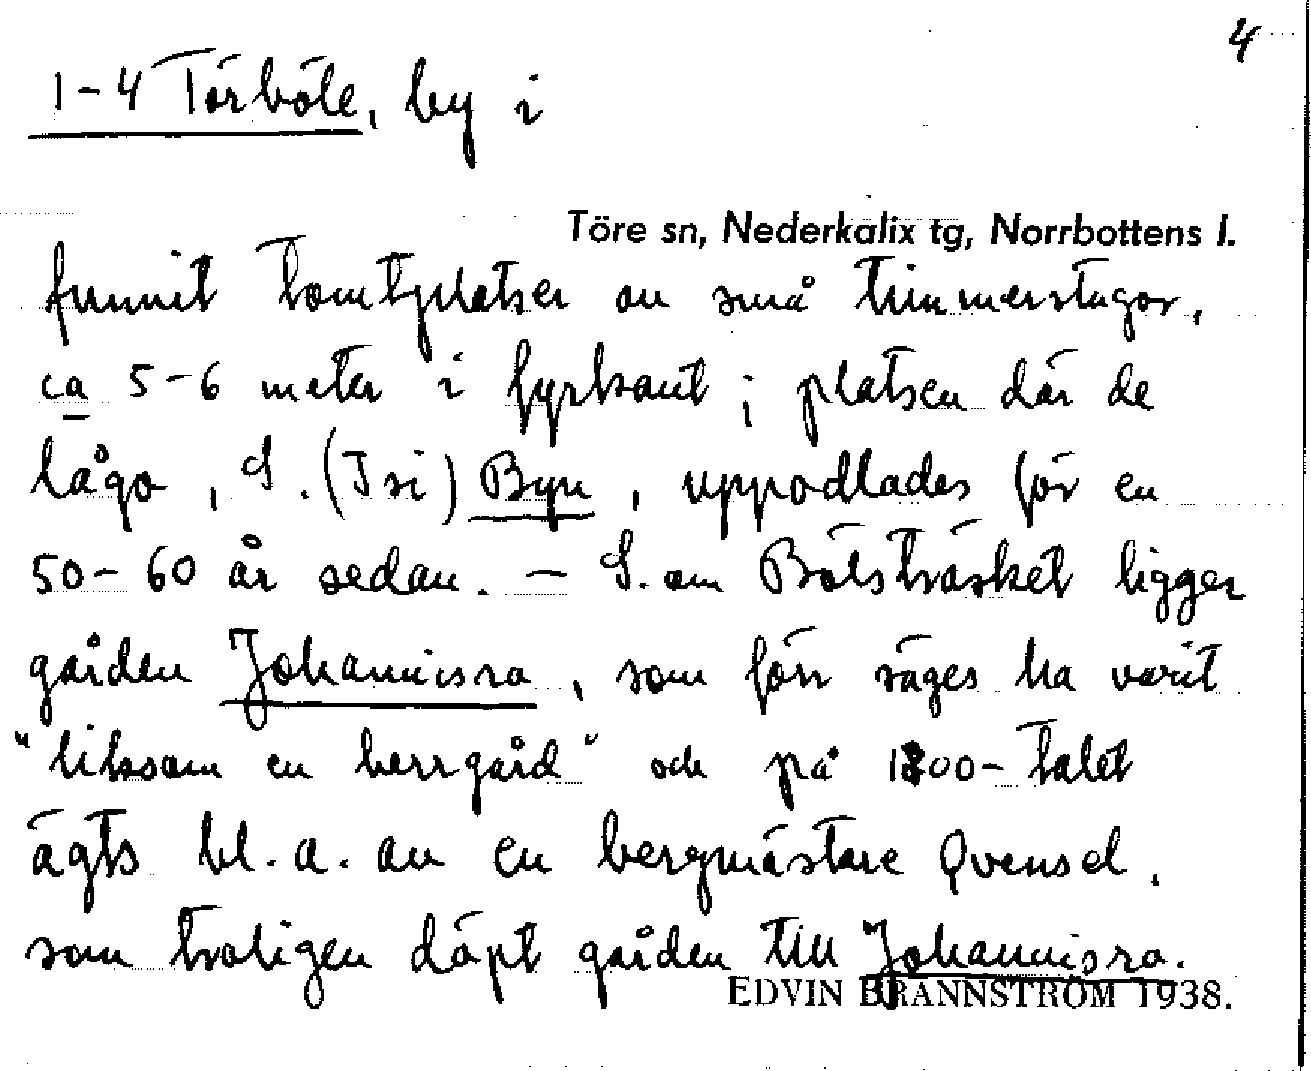 4
1-4 Törböle, by i
Töre sn, Nederkalix tg, Norrbottens l.
funnit tomtplatser av små timmerstugor,
ca 5-6 meter i fyrkant; platsen där de
lågo, S. (Isi) Byn, uppodlades för en
50-60 år sedan. – S. om Bölsträsket ligger
gården Johannisro, som förr säges ha varit
"liksom en herrgård" och på 1800-talet
ägts bl.a. av en bergmästare Qvensel,
som troligen döpt gården till Johannisro.
EDVIN BRÄNNSTRÖM 1938.